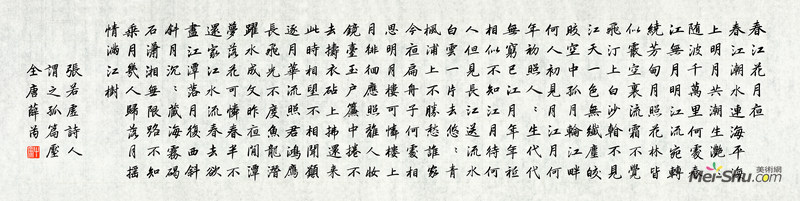 春江花月夜
春江潮水連海平海
上明月共潮生灩灩
隨波千萬里何處春
江無月明江流宛轉
繞芳甸月照花林皆
似霰空裏流霜不覺
飛汀上白沙看不見
江天一色無纖塵皎
皎空中孤月輪江畔
何人初見月江月何
年初照人人生代代
無窮已江月年年秪
相似不知江月待何
人但見長江送流水
白雲一片去悠悠青
楓浦上不勝愁誰家
今夜扁舟子何處相
思明月樓可憐樓上
月徘徊應照離人妝
鏡臺玉戶簾中捲不
去擣衣砧上拂還來
此時相望不相聞願
逐月華流照君鴻雁
長飛光不度魚龍潛
躍水成文昨夜閒潭
夢落花可憐春半不
還家江水流春去欲
盡江潭落月復西斜
斜月沉沉藏海霧碣
石瀟湘無限路不知
乘月幾人歸落月搖
情滿江樹
張若虛詩人
謂之孤篇壓
全唐 薛芮
美術網
Mei-Shu.com